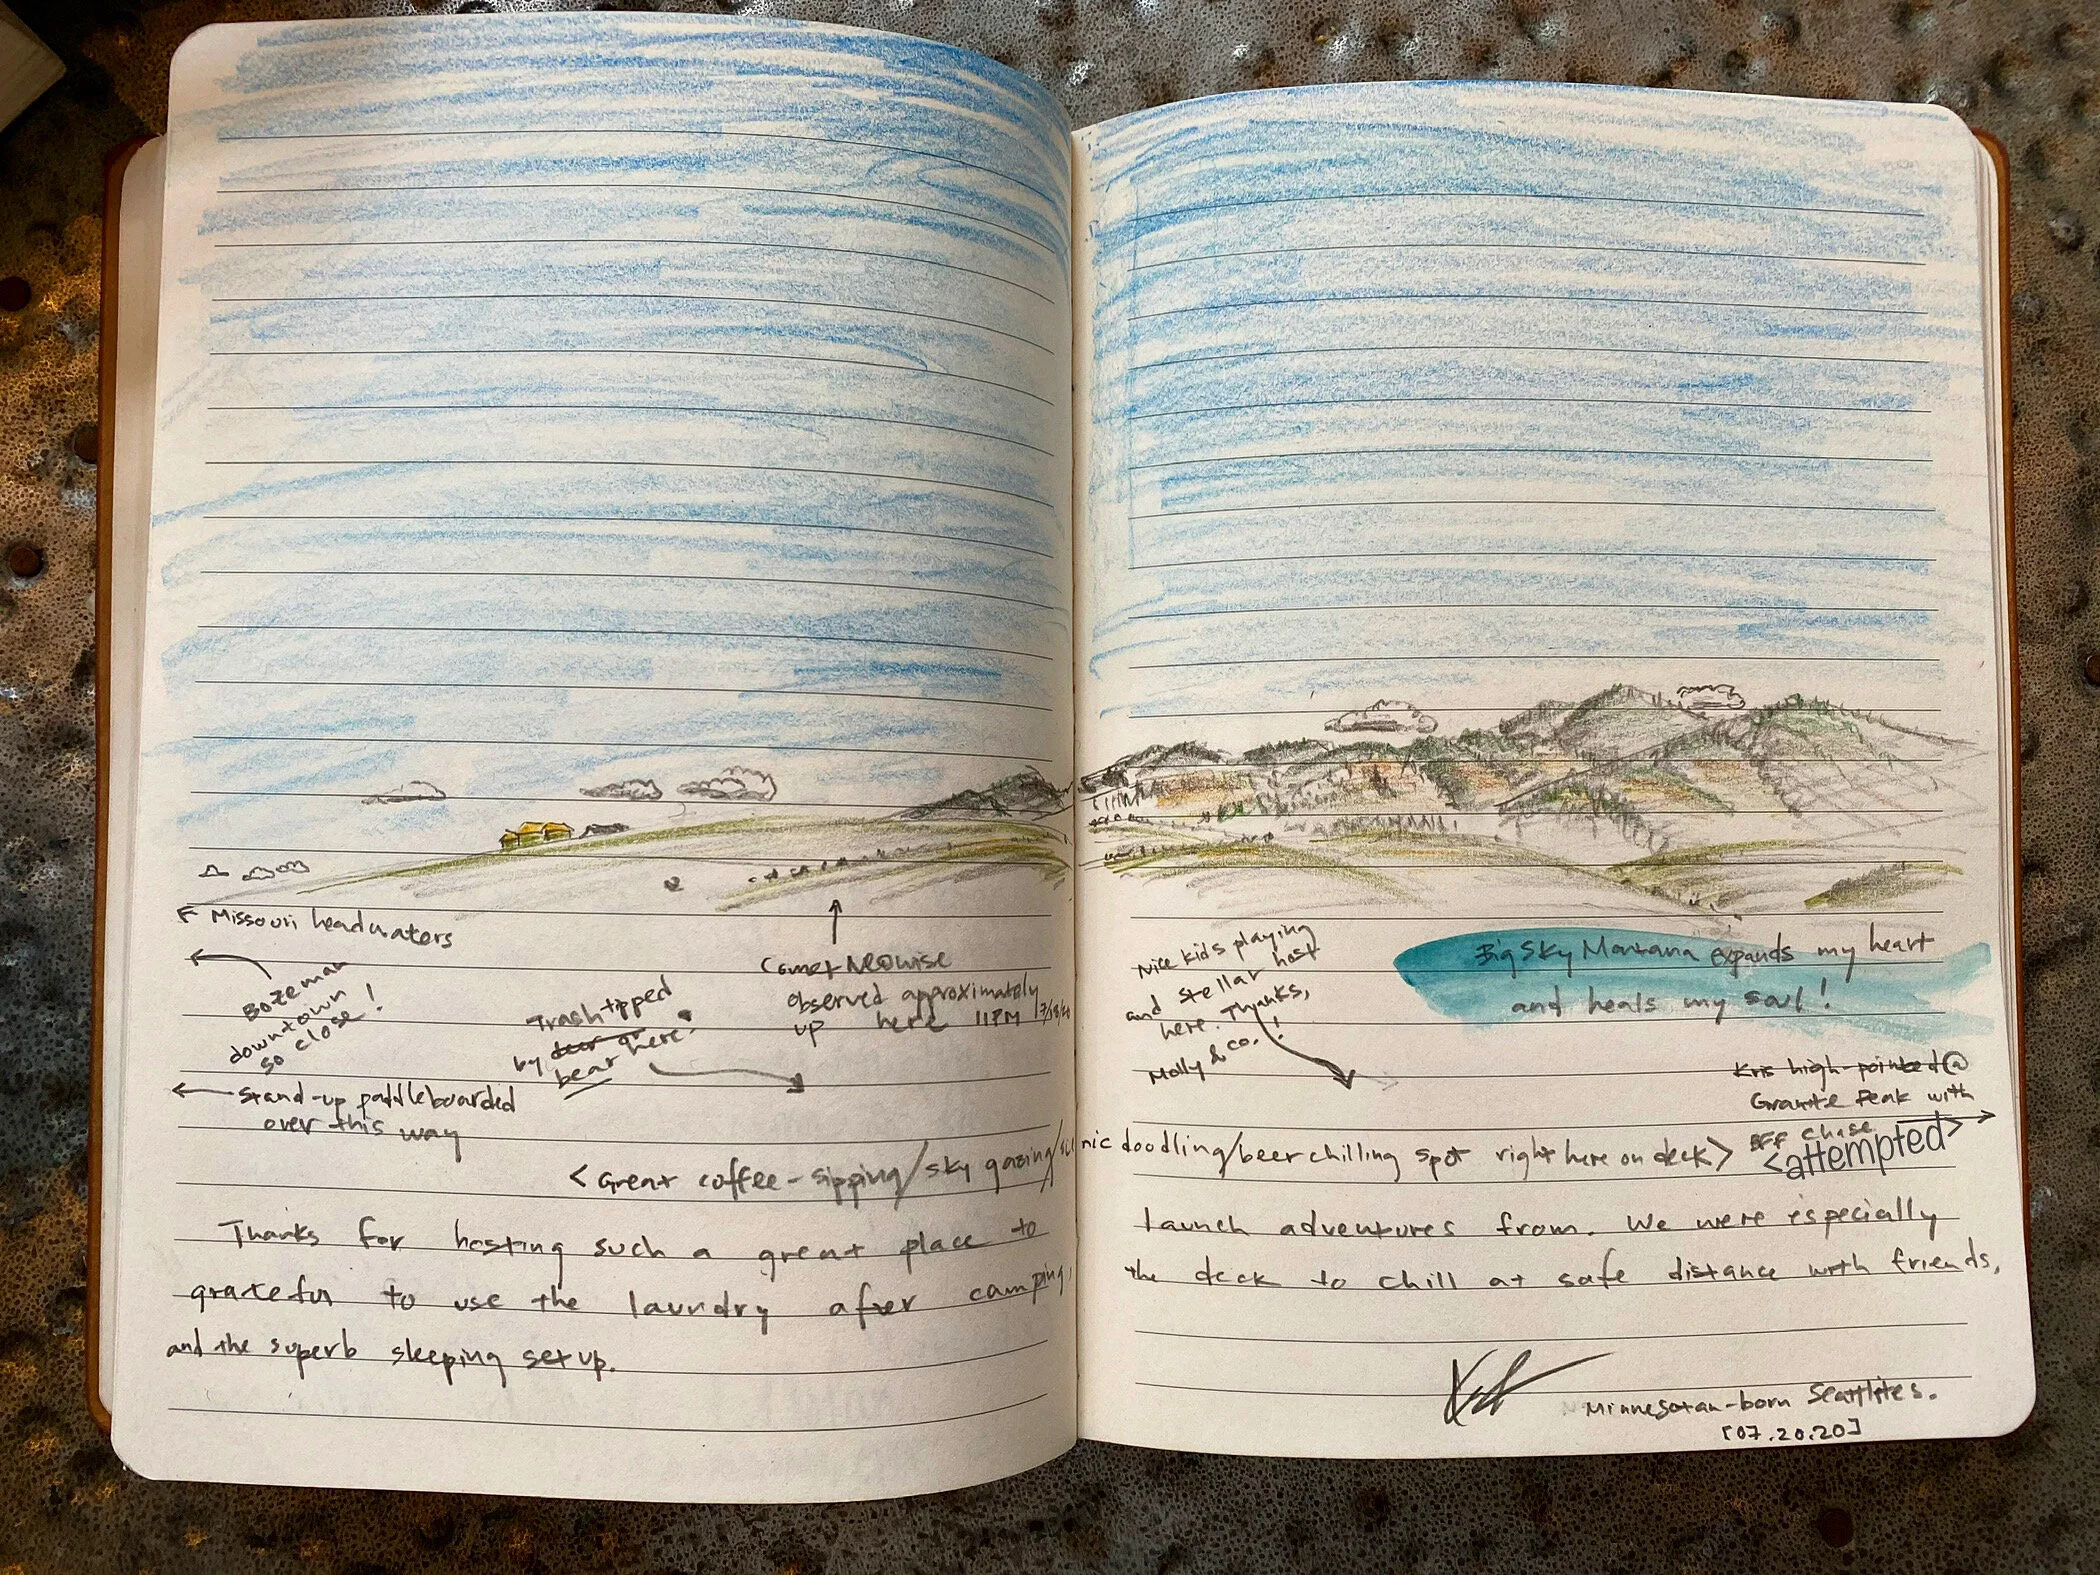 ← Missouri headwaters
← Bozeman
downtown
so close!
Trash tipped
by deer or here?
bear
← Stand-up paddleboarded
over this way
Comet NEOWISE
observed approximately
up here 11PM 7/18/20
<Great coffee-sipping/sky gazing/scenic doodling/beer chilling spot right here on deck>
Nice kids playing
and stellar host
here. Thanks,
Molly & Co.!
Big Sky Montana expands my heart
and heals my soul!
Kris high-pointed @
Granite Peak with
BFF Chase
<attempted>
Thanks for hosting such a great place to launch adventures from. We were especially
grateful to use the laundry after camping, the deck to chill at safe distance with friends,
and the superb sleeping setup.
Minnesotan-born Seattlites.
[07.20.20]